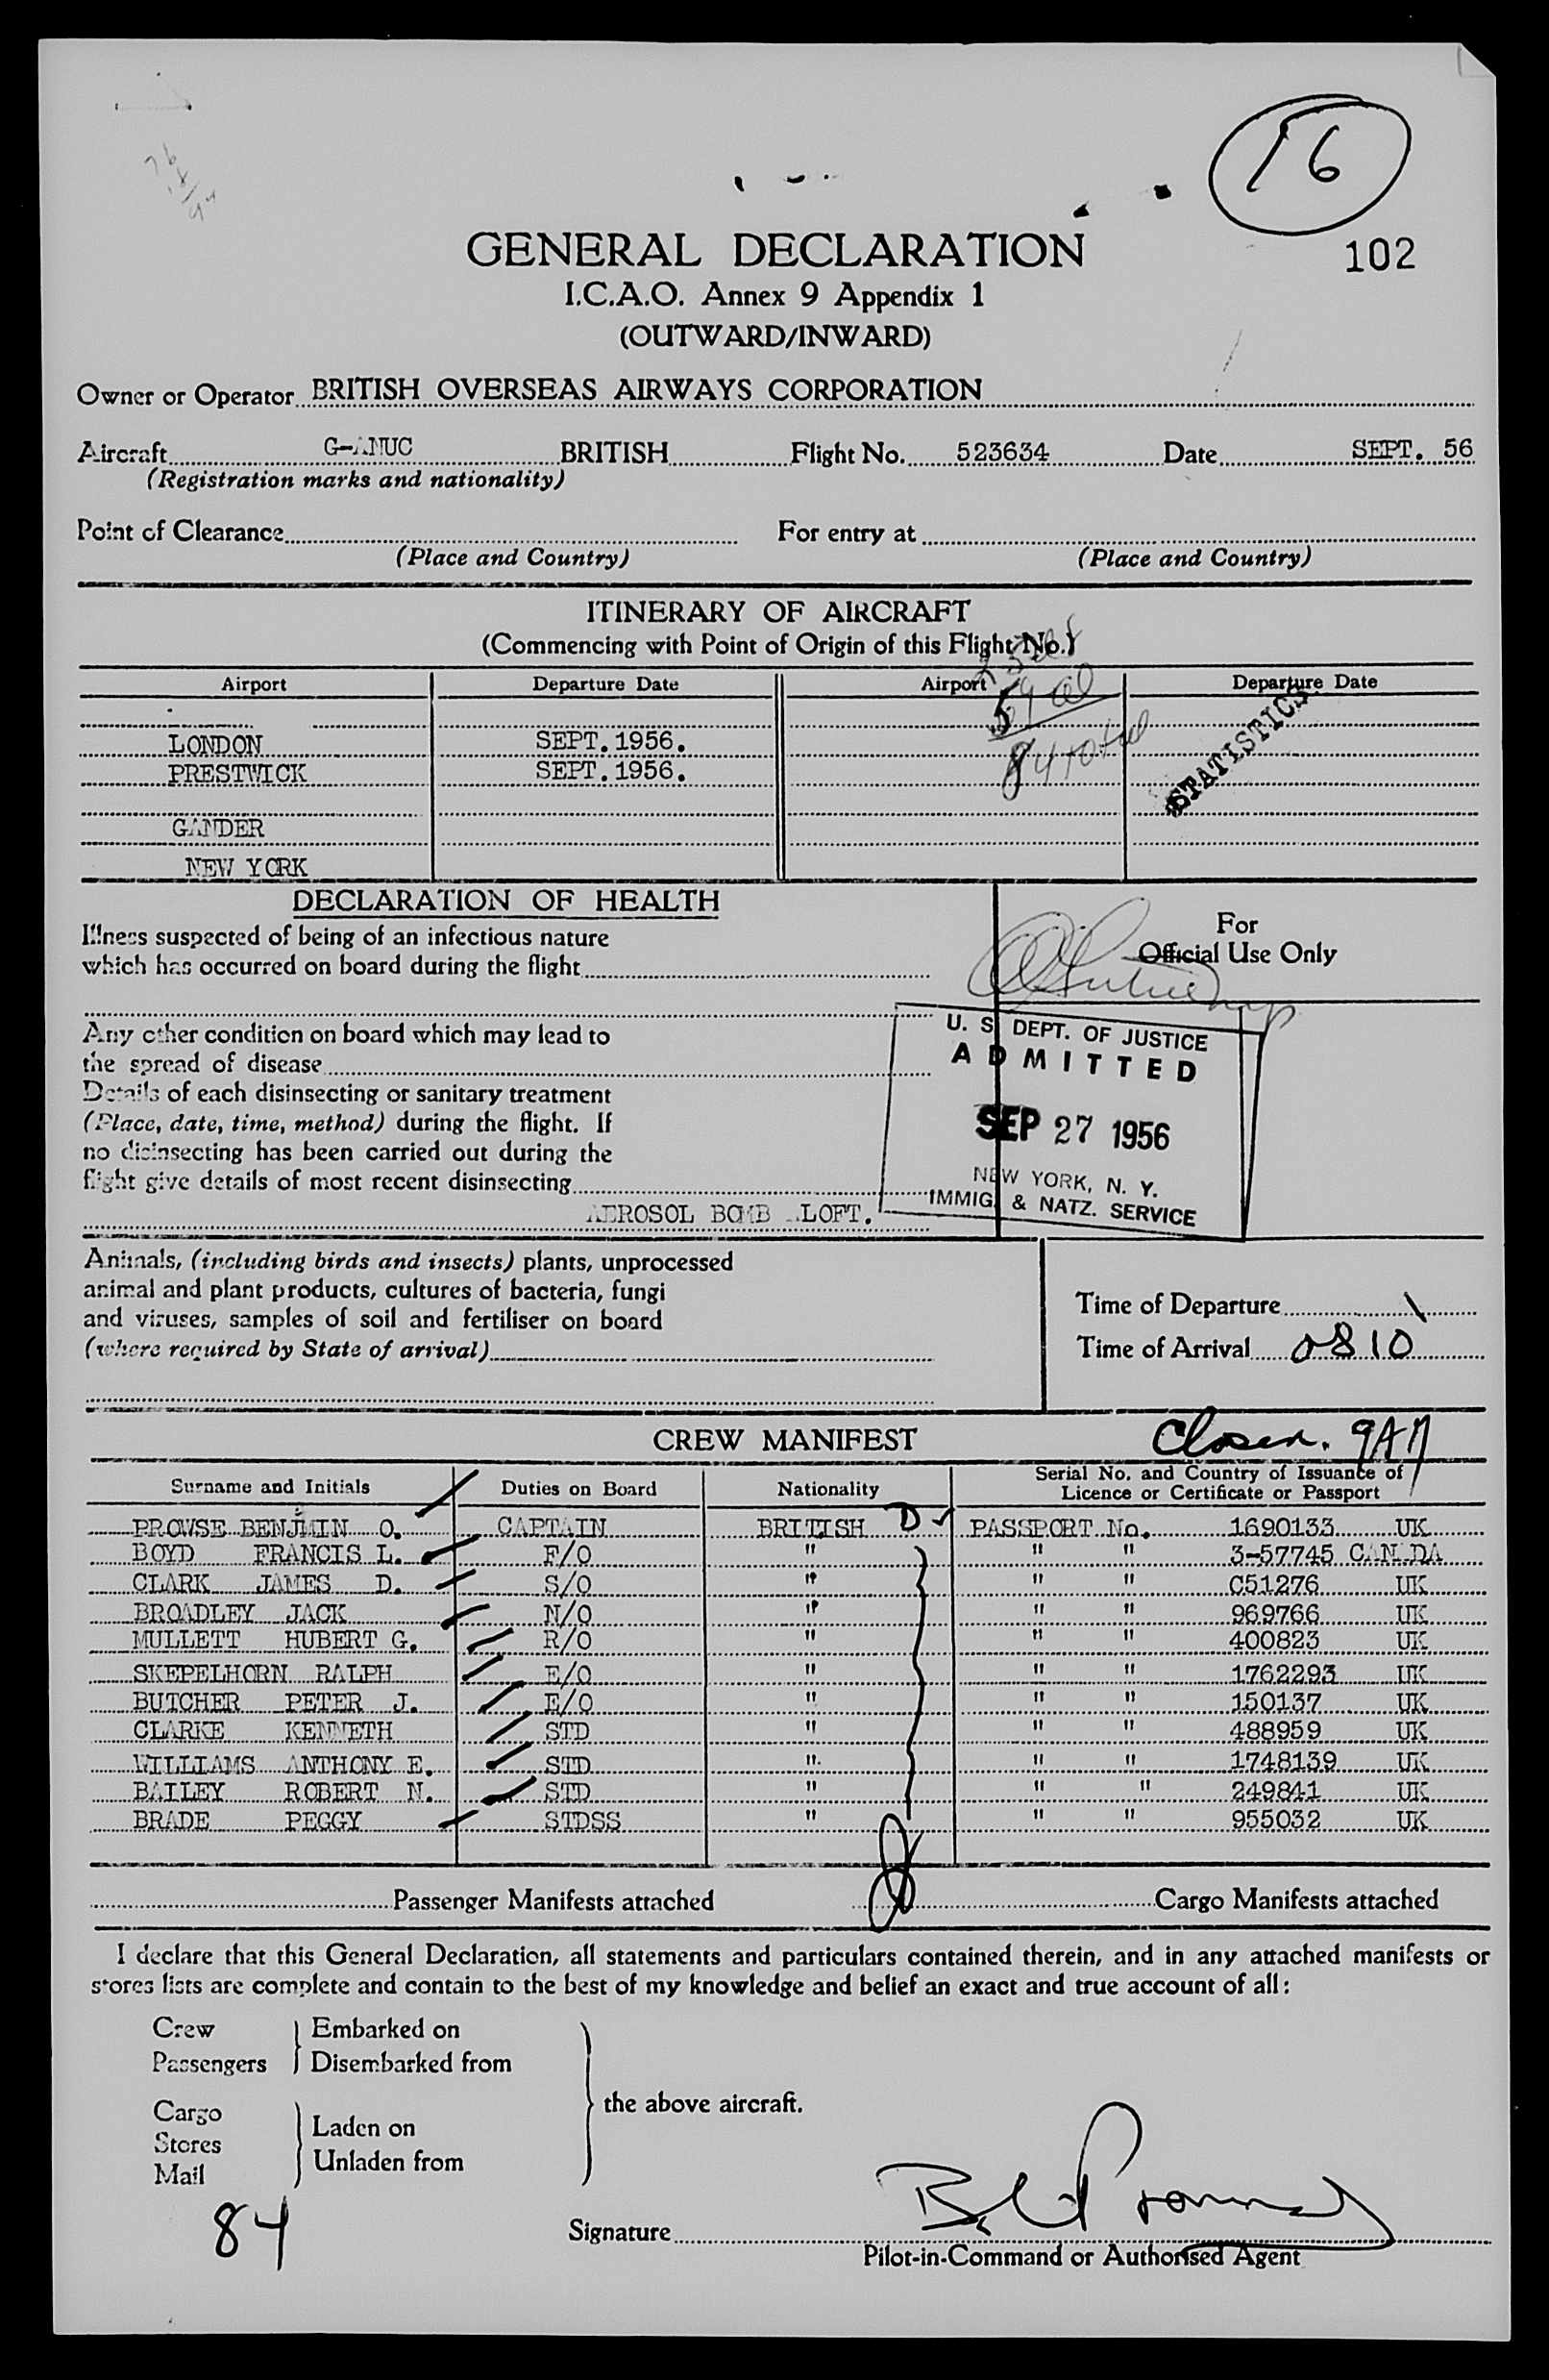 16
102
GENERAL DECLARATION
I.C.A.O. Annex 9 Appendix 1
(OUTWARD/INWARD)
Owner or Operator BRITISH OVERSEAS AIRWAYS CORPORATION
Aircraft G-ANUC BRITISH Flight No. 523634 Date SEPT. 56
(Registration marks and nationality)
Point of Clearance For entry at
(Place and Country) (Place and Country)
ITINERARY OF AIRCRAFT
(Commencing with Point of Origin of this Flight No.)
Airport Departure Date Airport Departure Date
59
84 total
STATISTICS
LONDON SEPT. 1956.
PRESTWICK SEPT. 1956.
GANDER
NEW YORK
DECLARATION OF HEALTH
Illness suspected of being of an infectious nature
which has occurred on board during the flight
For
Official Use Only
Any other condition on board which may lead to
the spread of disease
Details of each disinsecting or sanitary treatment
(Place, date, time, method) during the flight. If
no disinsecting has been carried out during the
flight give details of most recent disinsecting
AEROSOL BOMB ALOFT.
U. S. DEPT. OF JUSTICE
ADMITTED
SEP 27 1956
NEW YORK, N. Y.
IMMIG. & NATZ. SERVICE
Animals, (including birds and insects) plants, unprocessed
animal and plant products, cultures of bacteria, fungi
and viruses, samples of soil and fertiliser on board
(where required by State of arrival)
Time of Departure
Time of Arrival 0810
CREW MANIFEST
Closed. 9AM
Surname and Initials Duties on Board Nationality Serial No. and Country of Issuance of
Licence or Certificate or Passport
PROWSE BENJMIN O. CAPTAIN BRITISH D PASSPORT No. 1690133 UK
BOYD FRANCIS L. F/O " " " 3-57745 CANADA
CLARK JAMES D. S/O " " " C51276 UK
BROADLEY JACK N/O " " " 969766 UK
MULLETT HUBERT G. R/O " " " 400823 UK
SKEPELHORN RALPH E/O " " " 1762293 UK
BUTCHER PETER J. E/O " " " 150137 UK
CLARKE KENNETH STD " " " 488959 UK
WILLIAMS ANTHONY E. STD " " " 1748139 UK
BAILEY ROBERT N. STD " " " 249841 UK
BRADE PEGGY STDSS " " " 955032 UK
Passenger Manifests attached Cargo Manifests attached
I declare that this General Declaration, all statements and particulars contained therein, and in any attached manifests or
stores lists are complete and contain to the best of my knowledge and belief an exact and true account of all:
Crew Embarked on
Passengers Disembarked from
the above aircraft.
Cargo
Laden on
Stores
Unladen from
Mail
84
Signature
Pilot-in-Command or Authorised Agent